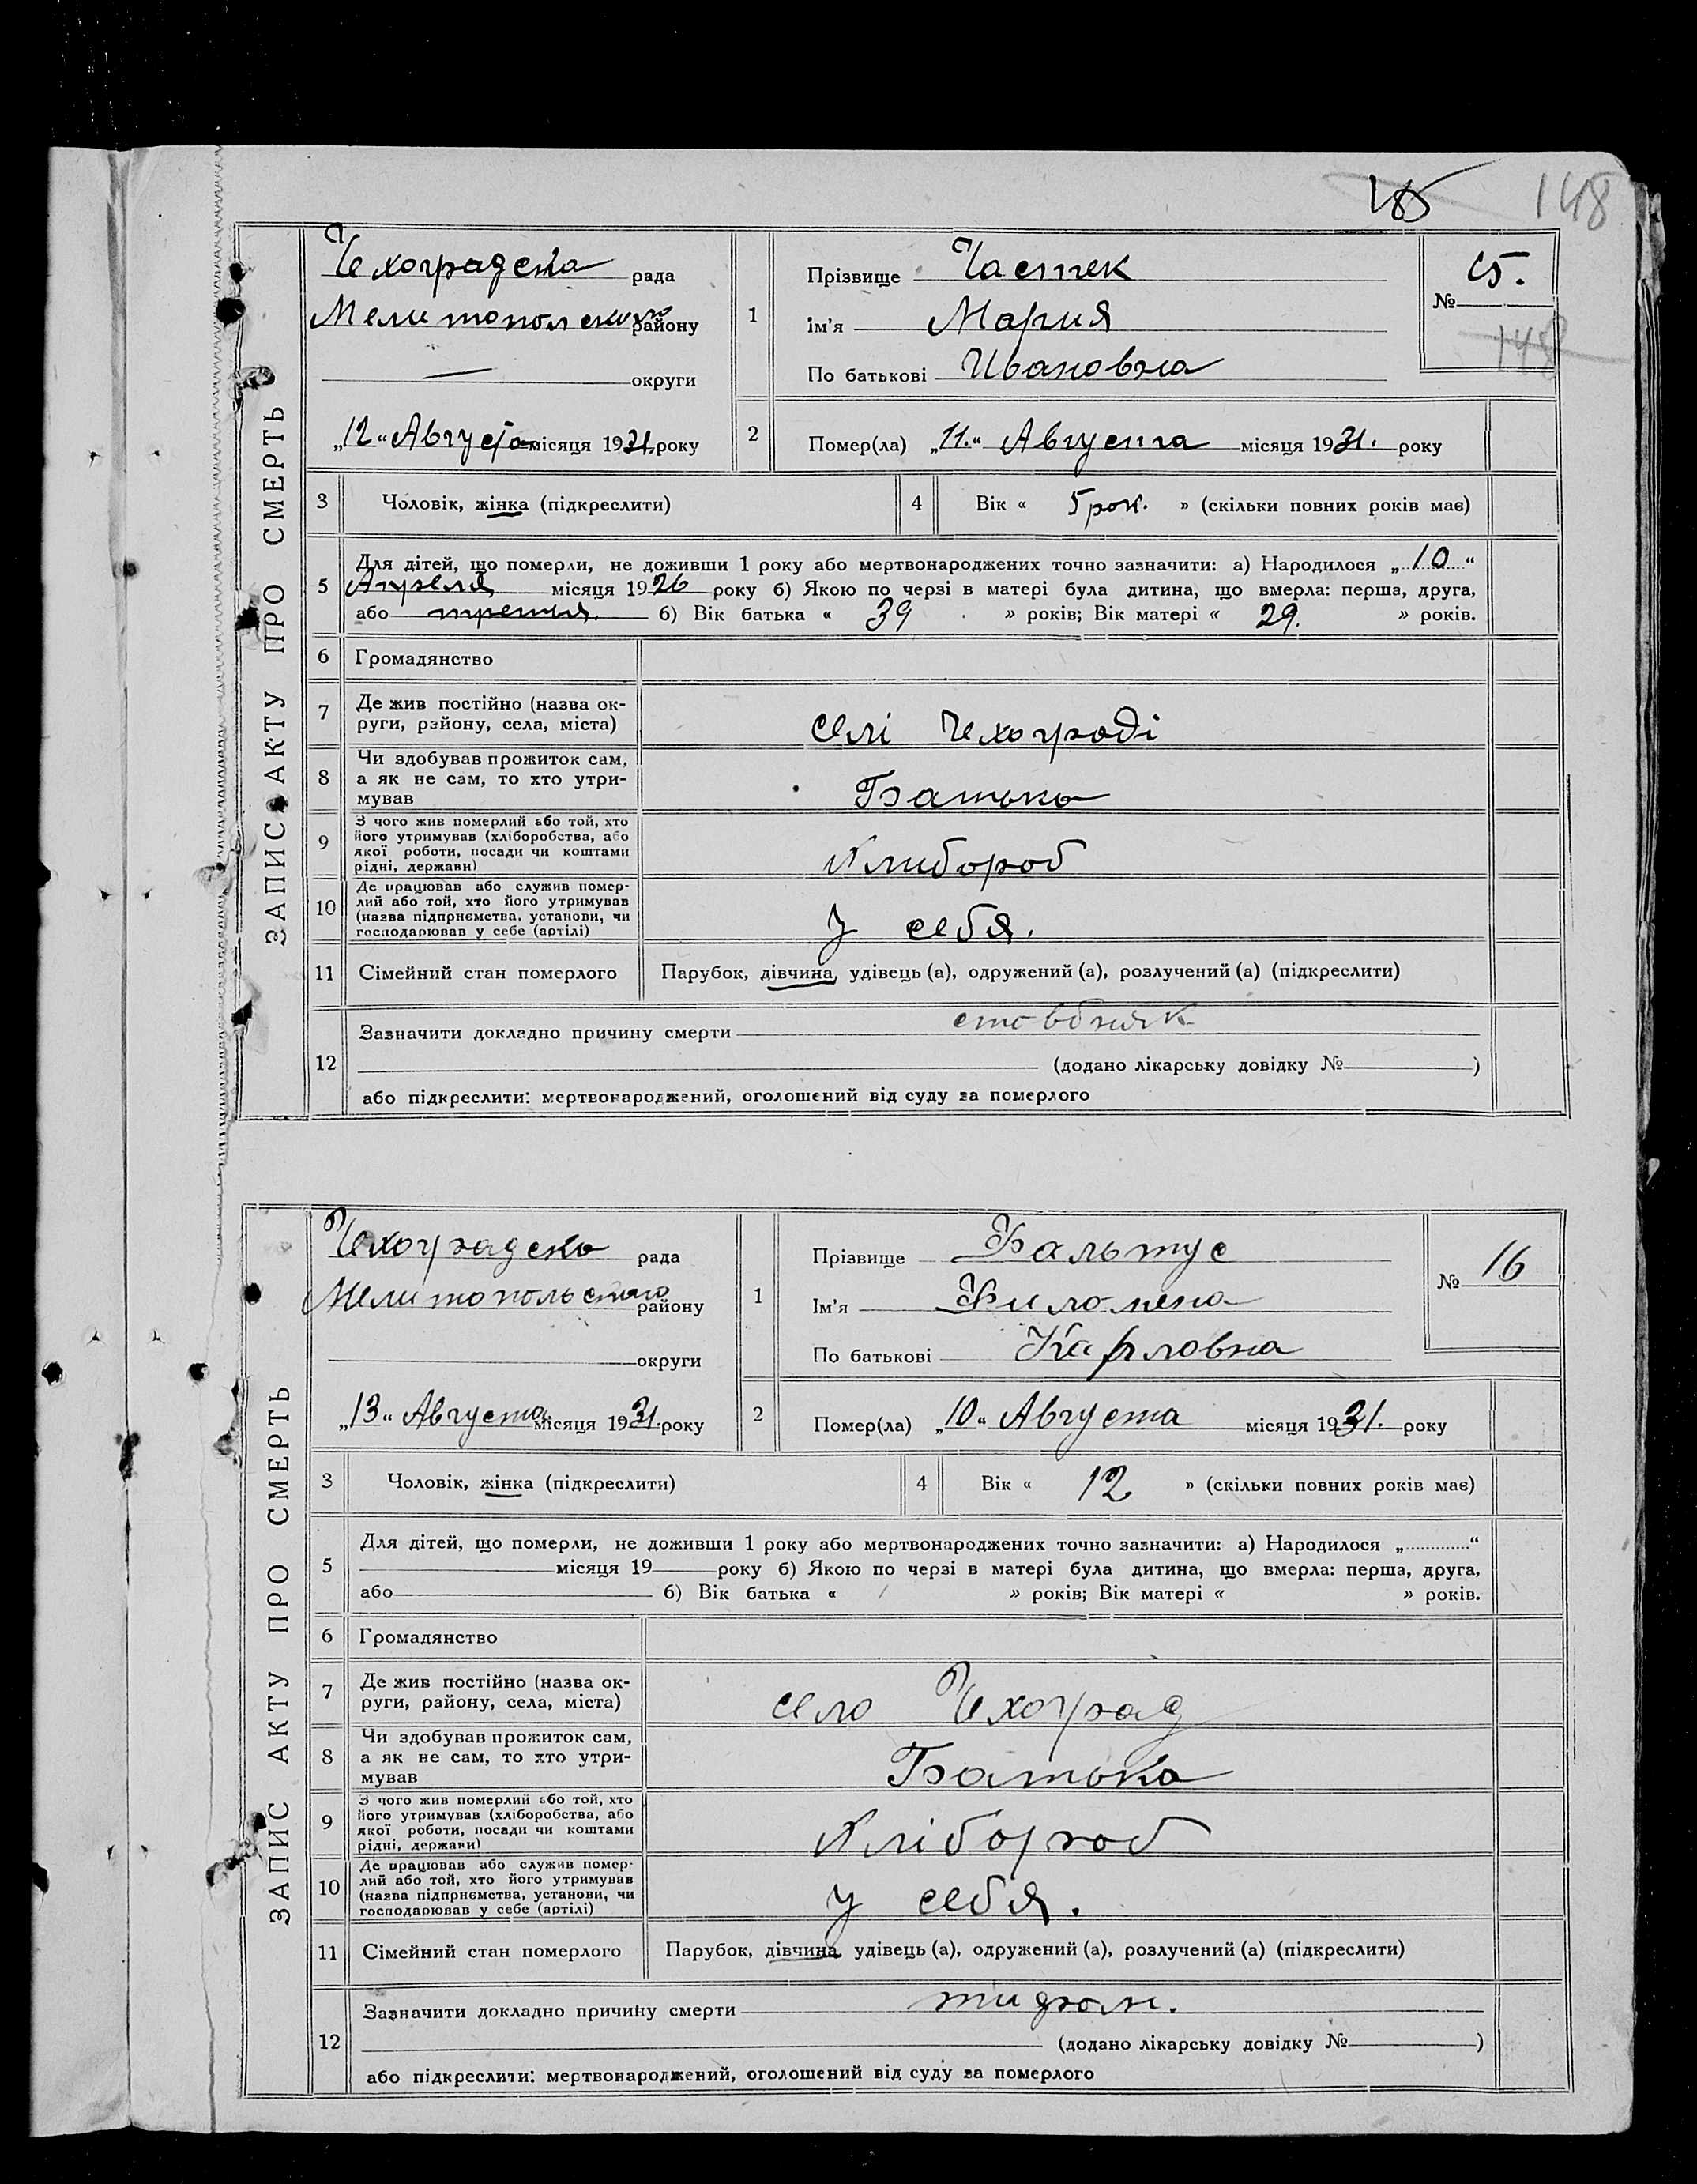 148
ЗАПИС АКТУ ПРО СМЕРТЬ
Чехоградска рада
Мелитопольского району
— округи
„12“ Августа місяця 1931 року
1 Прізвище Частек
ім'я Мария
По батькові Ивановна
№ 15.
148
2 Помер(ла) „11.“ Августа місяця 1931. року
3 Чоловік, жінка (підкреслити)
4 Вік « 5 рок. » (скільки повних років має)
5 Для дітей, що померли, не доживши 1 року або мертвонароджених точно зазначити: а) Народилося „10“
Апреля місяця 1926 року б) Якою по черзі в матері була дитина, що вмерла: перша, друга,
або третья. б) Вік батька « 39 » років; Вік матері « 29. » років.
6 Громадянство
7 Де жив постійно (назва ок-
руги, району, села, міста)
селі Чехограді
8 Чи здобував прожиток сам,
а як не сам, то хто утри-
мував
Батько
9 З чого жив померлий або той, хто
його утримував (хліборобства, або
якої роботи, посади чи коштами
рідні, держави)
Хлибороб
10 Де працював або служив помер-
лий або той, хто його утримував
(назва підприємства, установи, чи
господарював у себе (артілі)
У себя.
11 Сімейний стан померлого
Парубок, дівчина, удівець (а), одружений (а), розлучений (а) (підкреслити)
12 Зазначити докладно причину смерти стовбняк
(додано лікарську довідку № )
або підкреслити: мертвонароджений, оголошений від суду за померлого
ЗАПИС АКТУ ПРО СМЕРТЬ
Чехоградска рада
Мелитопольского району
округи
„13“ Августа місяця 1931. року
1 Прізвище Фальтус
Ім'я Филомена
По батькові Карловна
№ 16
2 Помер(ла) „10“ Августа місяця 1931. року
3 Чоловік, жінка (підкреслити)
4 Вік « 12 » (скільки повних років має)
5 Для дітей, що померли, не доживши 1 року або мертвонароджених точно зазначити: а) Народилося „ “
місяця 19 року б) Якою по черзі в матері була дитина, що вмерла: перша, друга,
або б) Вік батька « » років; Вік матері « » років.
6 Громадянство
7 Де жив постійно (назва ок-
руги, району, села, міста)
село Чехоград
8 Чи здобував прожиток сам,
а як не сам, то хто утри-
мував
Батька
9 З чого жив померлий або той, хто
його утримував (хліборобства, або
якої роботи, посади чи коштами
рідні, держави)
Хлібороб
10 Де працював або служив помер-
лий або той, хто його утримував
(назва підприємства, установи, чи
господарював у себе (артілі)
У себя.
11 Сімейний стан померлого
Парубок, дівчина, удівець (а), одружений (а), розлучений (а) (підкреслити)
12 Зазначити докладно причину смерти
(додано лікарську довідку № )
або підкреслити: мертвонароджений, оголошений від суду за померлого